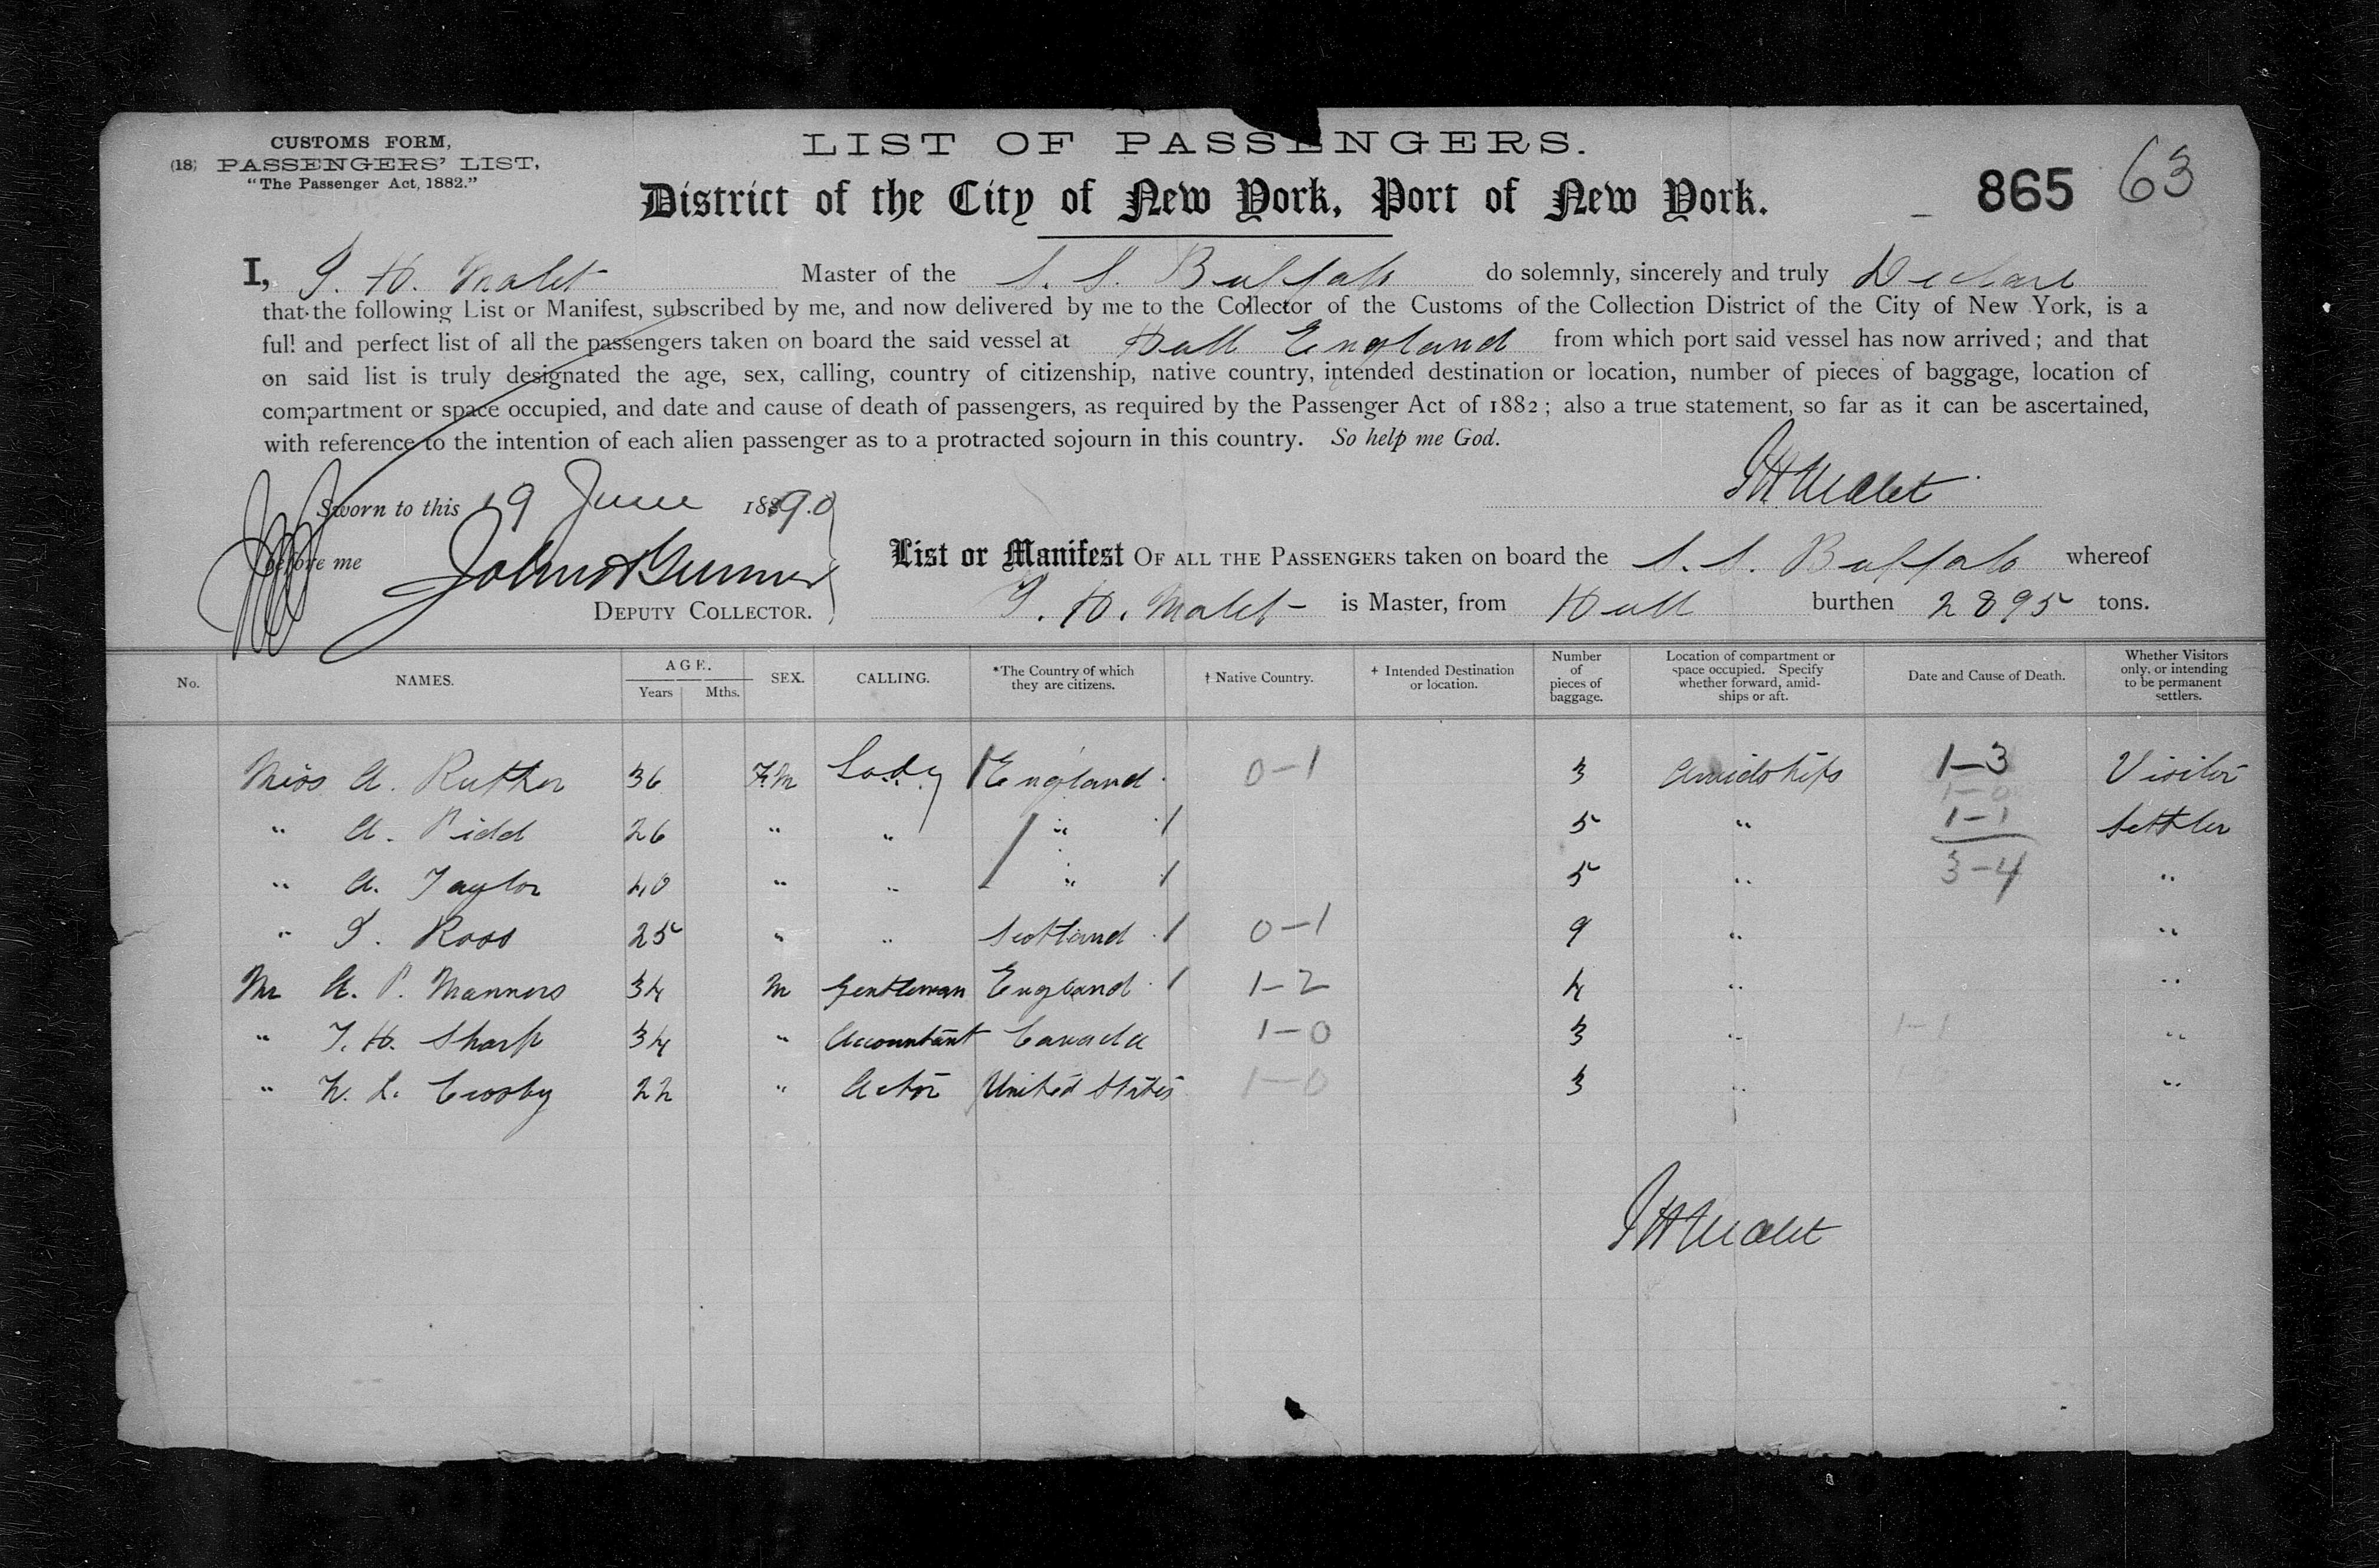 CUSTOMS FORM,
(18) PASSENGERS' LIST,
"The Passenger Act, 1882."
LIST OF PASSENGERS.
District of the City of New York, Port of New York.
865 63
I, T. H. Malet Master of the S. S. Buffalo do solemnly, sincerely and truly Declare
that the following List or Manifest, subscribed by me, and now delivered by me to the Collector of the Customs of the Collection District of the City of New York, is a
full and perfect list of all the passengers taken on board the said vessel at Hull England from which port said vessel has now arrived; and that
on said list is truly designated the age, sex, calling, country of citizenship, native country, intended destination or location, number of pieces of baggage, location of
compartment or space occupied, and date and cause of death of passengers, as required by the Passenger Act of 1882; also a true statement, so far as it can be ascertained,
with reference to the intention of each alien passenger as to a protracted sojourn in this country. So help me God.
Sworn to this 19 June 1890
before me
DEPUTY COLLECTOR.
List or Manifest OF ALL THE PASSENGERS taken on board the S. S. Buffalo whereof
T. H. Malet is Master, from Hull burthen 2895 tons.
No. NAMES. AGE. Years Mths. SEX. CALLING. *The Country of which they are citizens. † Native Country. + Intended Destination or location. Number of pieces of baggage. Location of compartment or space occupied. Specify whether forward, amidships or aft. Date and Cause of Death. Whether Visitors only, or intending to be permanent settlers.
Miss A. Ruther 36 Fm Lady England 0-1 3 Amidships 1-3 Visitor
" A. Pidd 26 " " " 5 " 1-1 Settler
" A. Taylor 40 " " " 5 " 3-4 "
" I. Ross 25 " " Scotland 0-1 9 " "
Mr A. P. Manners 34 M Gentleman England 1-2 4 " "
" T. H. Sharp 34 " Accountant Canada 1-0 3 " 1-1 "
" W. L. Crosby 22 " Actor United States 1-0 3 " "